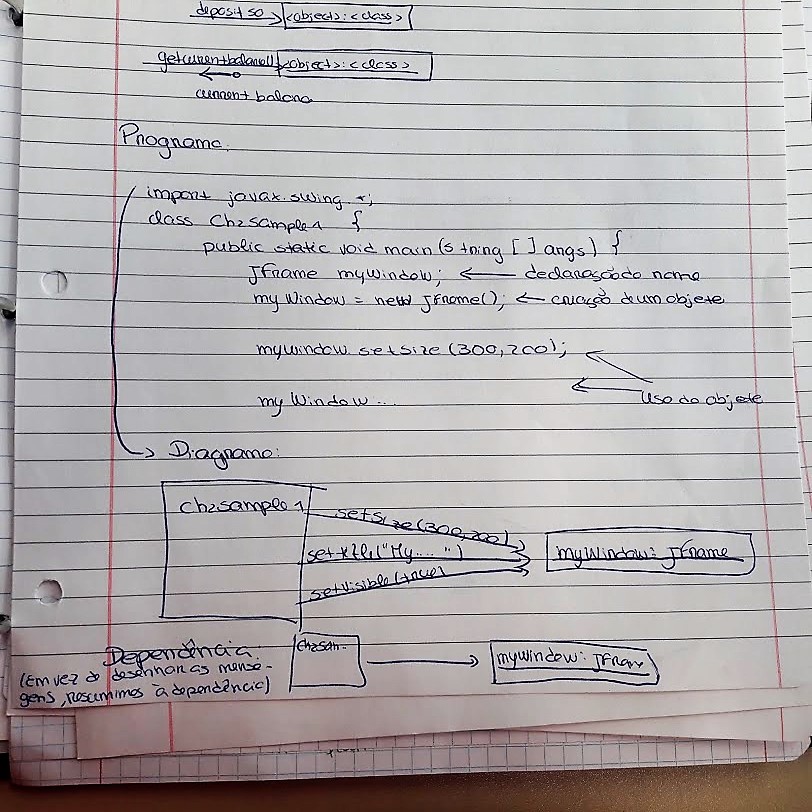 deposit so <object>:<class>
getcurrentbalance() <object>:<class>
current balana
Programa:
import javax.swing.*;
class Ch2Sample1 {
public static void main(String [] args) {
JFrame myWindow; ← declaração do nome
myWindow = new JFrame(); ← criação de um objete
mywindow.setSize (300,200);
my Window...
Uso do objete
Diagrama:
Ch2sample1
setSize(300,200)
setTitle("My....")
setVisible(true)
myWindow: JFrame
Dependência.
(Em vez de desenhar as mensa-
gens, resumimos a dependência)
Ch2sam-
mywindow: JFram